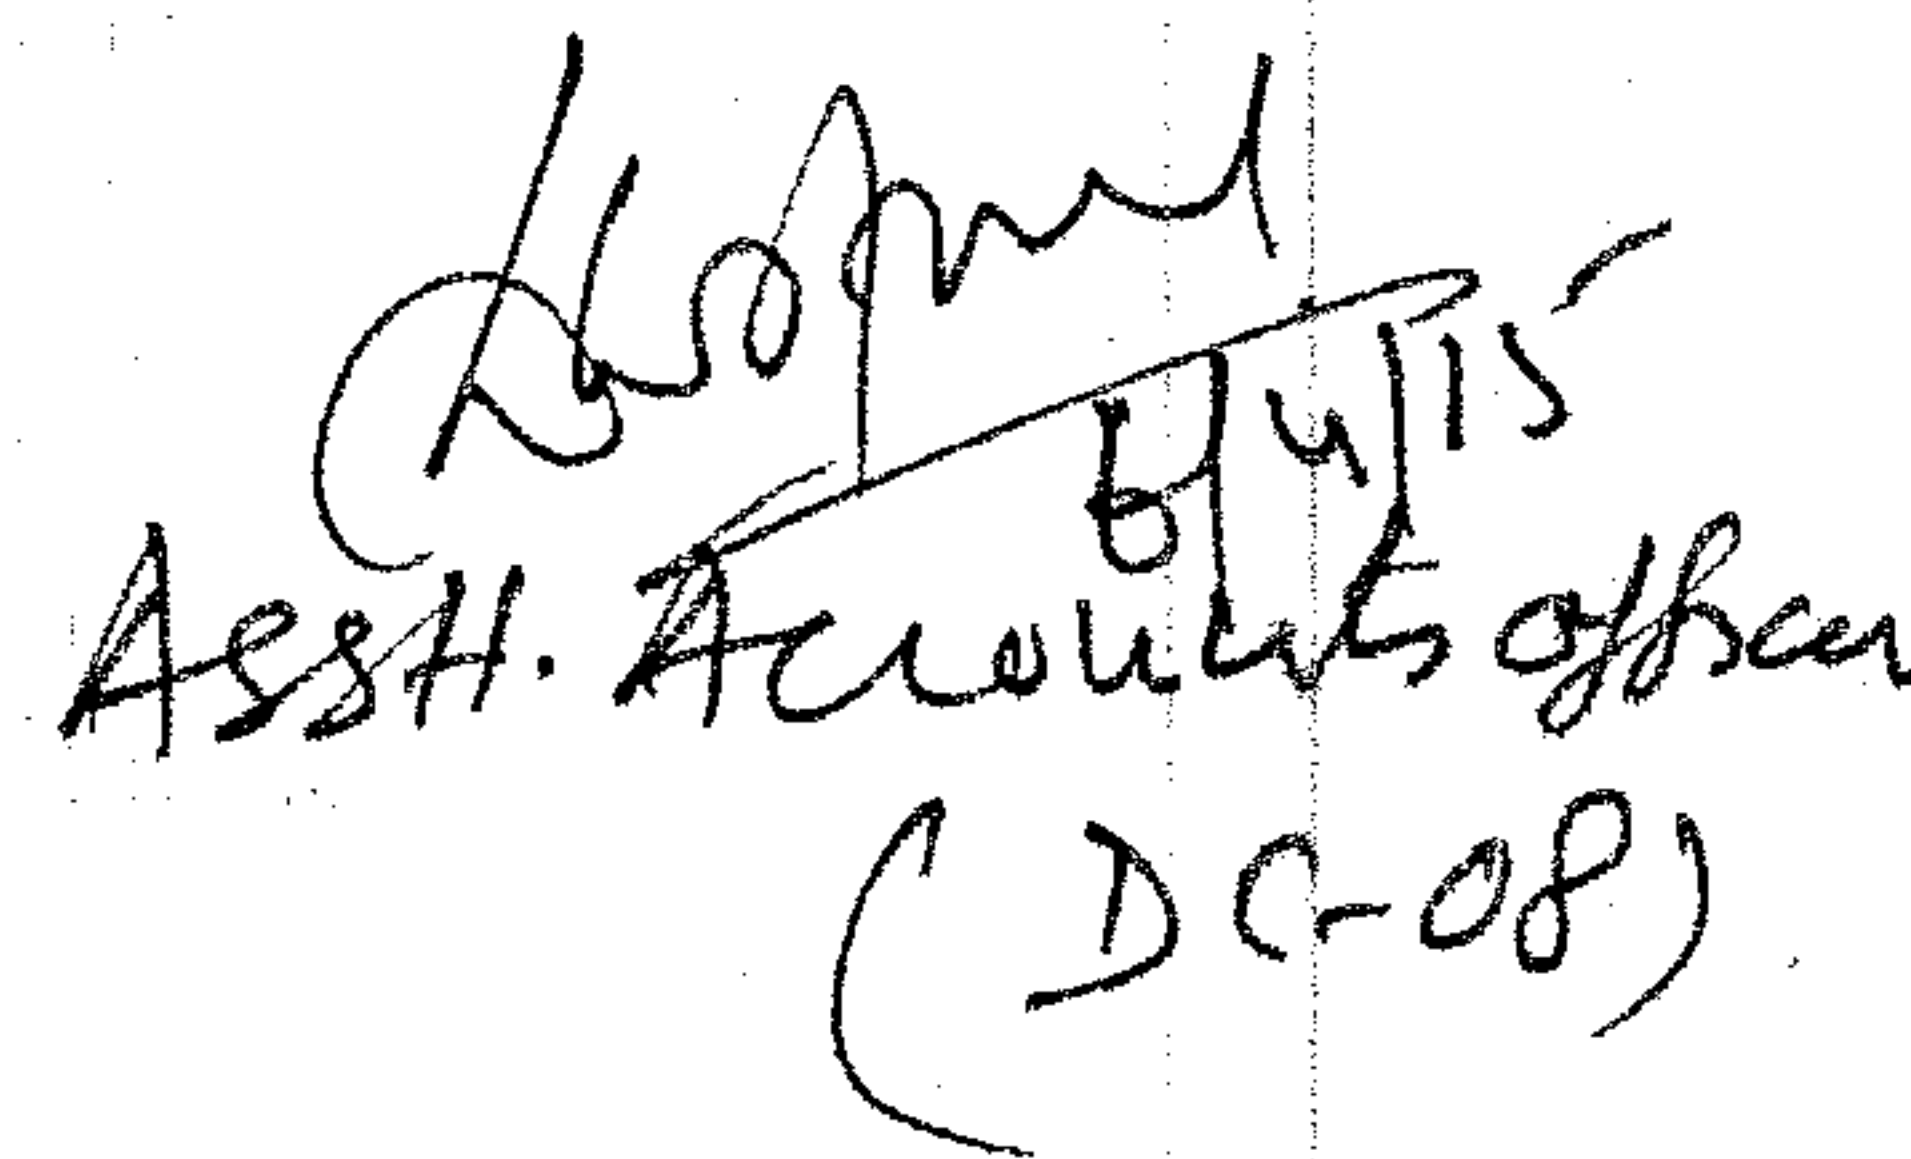 6/4/15
Asstt. Accounts officer
(DC-08)